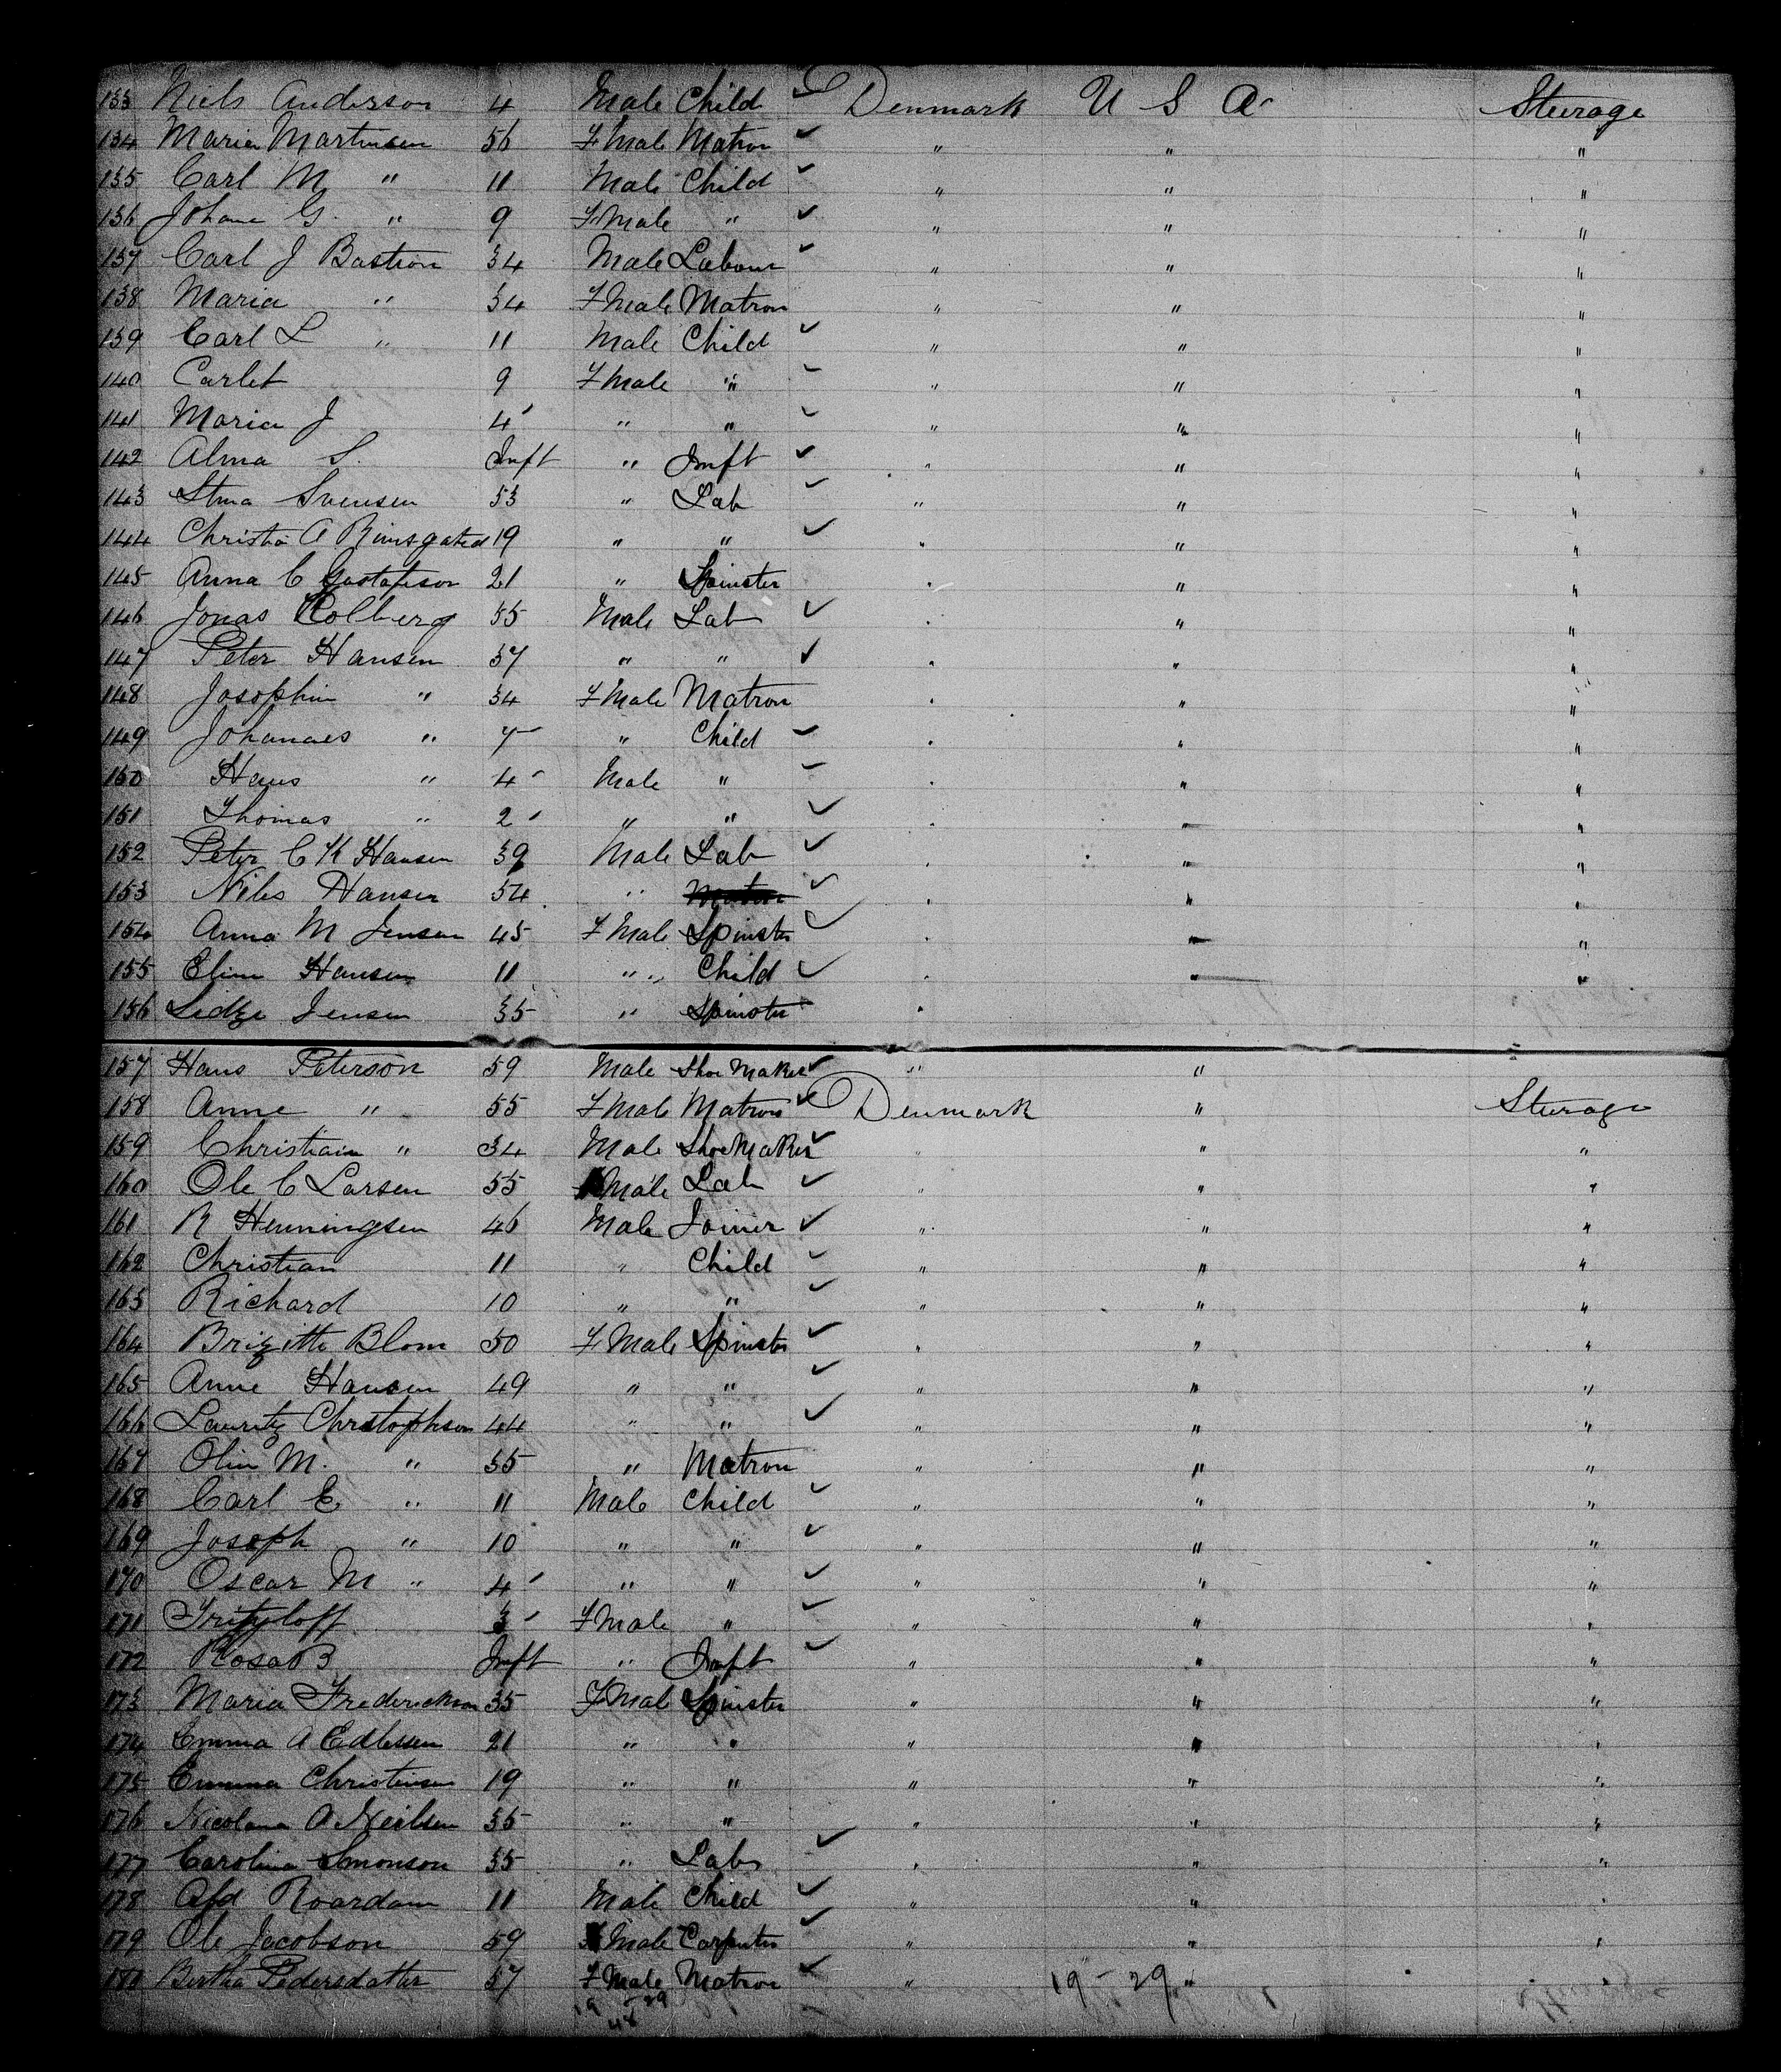 133 Niels Anderson 4 Male Child ✓ Denmark U S A Steerage
134 Maria Martinsen 56 F Male Matron ✓ " " "
135 Carl M " 11 Male Child ✓ " " "
136 Johane G. " 9 F Male " ✓ " " "
137 Carl J Bastion 34 Male Labour ✓ " " "
138 Maria " 34 F Male Matron " " "
139 Carl L " 11 Male Child ✓ " " "
140 Carlet 9 F Male " ✓ " " "
141 Maria J 4 " " ✓ " " "
142 Alma S. Inft " Inft ✓ " " "
143 Stina Svensen 53 " Lab ✓ " " "
144 Christa A 19 " " ✓ " " "
145 Anna C Gustafson 21 " Spinster " " "
146 Jonas Colberg 55 Male Lab ✓ " " "
147 Peter Hansen 37 " " ✓ " " "
148 Josephin " 34 F Male Matron " " "
149 Johannes " 7 " Child ✓ " " "
150 Hans " 4 Male " ✓ " " "
151 Thomas " 2 " " ✓ " " "
152 Peter C K Hansen 39 Male Lab ✓ " " "
153 Niles Hansen 54 " Matron ✓ " " "
154 Anna M Jensen 45 F Male Spinster ✓ " " "
155 Elim Hansen 11 " Child ✓ " " "
156 Jensen 35 " Spinster "
157 Hans Peterson 59 Male Shoe Maker ✓ " "
158 Anne " 55 F Male Matron ✓ Denmark " Steerage
159 Christiain " 34 Male Shoe Maker ✓ " " "
160 Ole C Larsen 55 Male Lab ✓ " " "
161 R Henningsen 46 Male Joiner ✓ " " "
162 Christian 11 " Child ✓ " " "
163 Richard 10 " " ✓ " " "
164 Brigitte Blom 50 F Male Spinster ✓ " " "
165 Anne Hansen 49 " " ✓ " " "
166 Lauritz Christophson 44 " " ✓ " " "
167 Olin M. " 35 " Matron " " "
168 Carl E. " 11 Male Child ✓ " " "
169 Joseph " 10 " " ✓ " " "
170 Oscar M " 4 " " ✓ " " "
171 3 F Male " ✓ " " "
172 Rosa B Inft " Inft ✓ " " "
173 Maria Frederickson 35 F Male Spinster " " "
174 Emma A Edlessen 21 " " " " "
175 Emma Christensen 19 " " " " "
176 Nicolana A Neilsen 35 " " " " "
177 Carolina Simonson 35 " Lab ✓ " " "
178 Afd Roardam 11 Male Child ✓ " " "
179 Ole Jacobson 59 Male Carpenter ✓ " " "
180 Bertha Pedersdatter 57 F Male Matron ✓ " 19 - 29 " "
19 - 29
48